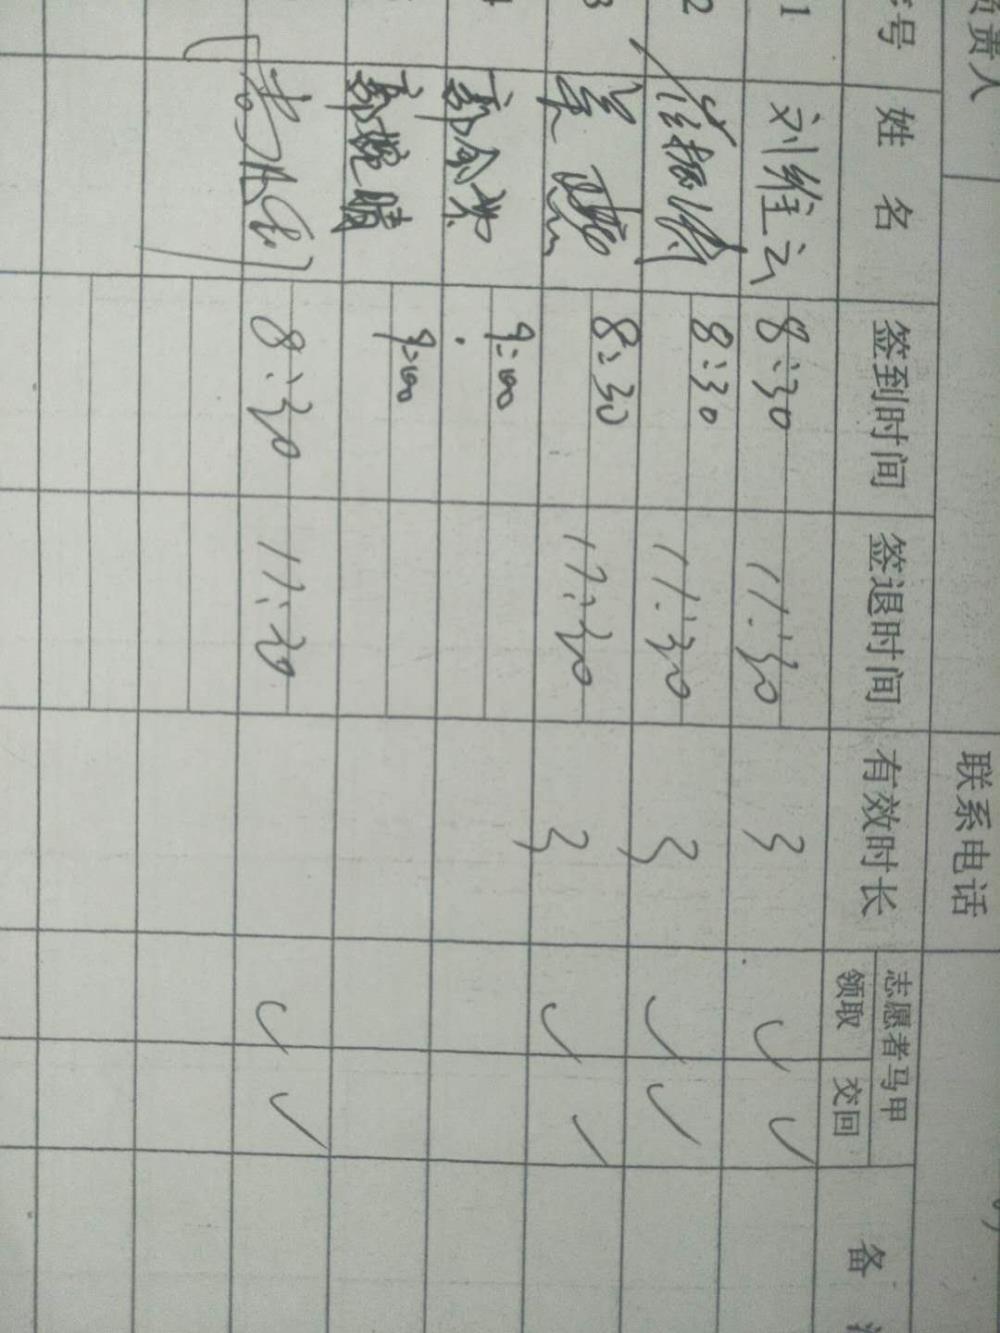 负责人 联系电话
序号 姓名 签到时间 签退时间 有效时长 志愿者马甲 备
领取 交回
1 刘维云 8:30 11:30 3 ✓ ✓
2 8:30 11:30 3 ✓ ✓
3 8:30 11:30 3 ✓ ✓
4 9:00
郭婉晴 9:00
8:30 11:30 ✓ ✓